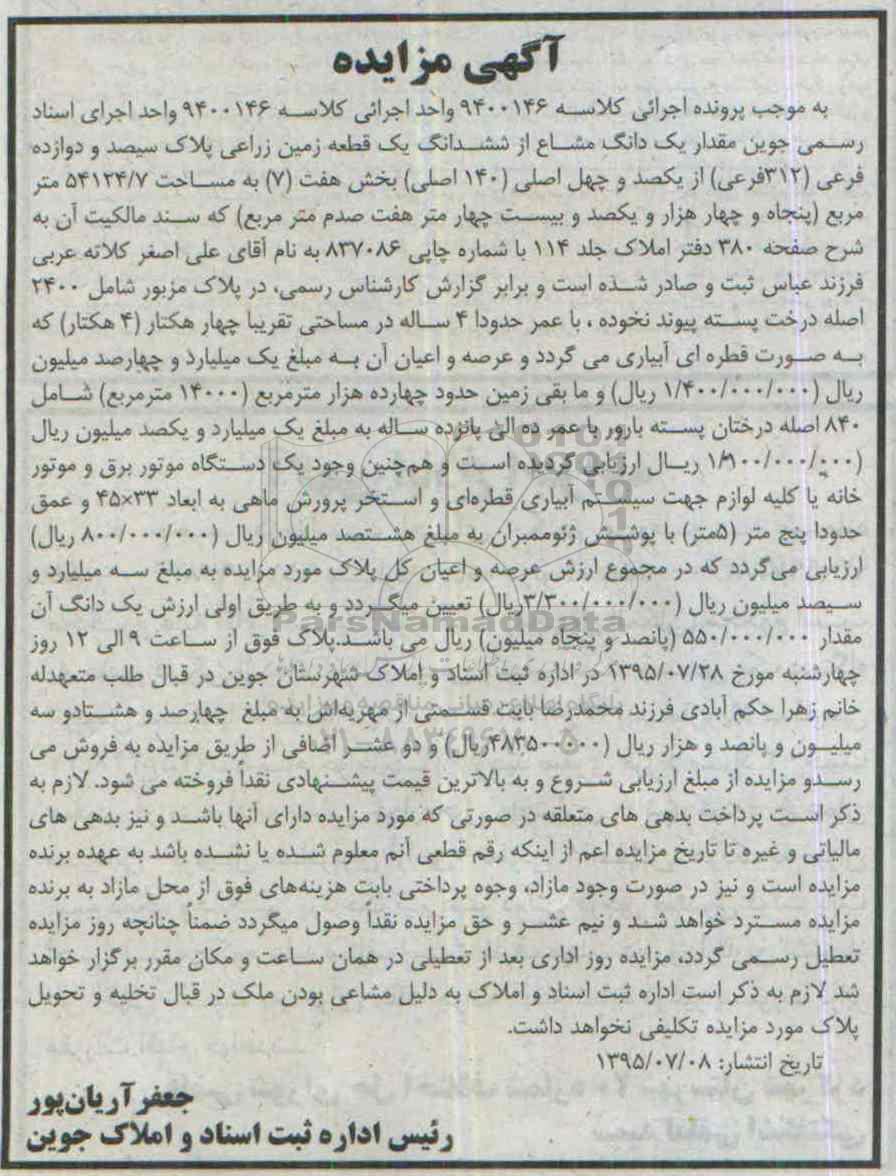 آگهی مزایده
به موجب پرونده اجرائی کلاسه ۹۴۰۰۱۴۶ واحد اجرائی کلاسه ۹۴۰۰۱۴۶ واحد اجرای اسناد
رسمی جوین مقدار یک دانگ مشاع از ششدانگ یک قطعه زمین زراعی پلاک سیصد و دوازده
فرعی (۳۱۲فرعی) از یکصد و چهل اصلی (۱۴۰ اصلی) بخش هفت (۷) به مساحت ۵۴۱۲۴/۷ متر
مربع (پنجاه و چهار هزار و یکصد و بیست چهار متر هفت صدم متر مربع) که سند مالکیت آن به
شرح صفحه ۳۸۰ دفتر املاک جلد ۱۱۴ با شماره چاپی ۸۳۷۰۸۶ به نام آقای علی اصغر کلاته عربی
فرزند عباس ثبت و صادر شده است و برابر گزارش کارشناس رسمی، در پلاک مزبور شامل ۲۴۰۰
اصله درخت پسته پیوند نخوده ، با عمر حدودا ۴ ساله در مساحتی تقریبا چهار هکتار (۴ هکتار) که
به صورت قطره ای آبیاری می گردد و عرصه و اعیان آن به مبلغ یک میلیارد و چهارصد میلیون
ریال (۱/۴۰۰/۰۰۰/۰۰۰ ریال) و ما بقی زمین حدود چهارده هزار مترمربع (۱۴۰۰۰ مترمربع) شامل
۸۴۰ اصله درختان پسته بارور با عمر ده الی پانزده ساله به مبلغ یک میلیارد و یکصد میلیون ریال
(۱/۱۰۰/۰۰۰/۰۰۰ ریال ارزیابی گردیده است و هم‌چنین وجود یک دستگاه موتور برق و موتور
خانه یا کلیه لوازم جهت سیستم آبیاری قطره‌ای و استخر پرورش ماهی به ابعاد ۳۳×۴۵ و عمق
حدودا پنج متر (۵متر) با پوشش ژئوممبران به مبلغ هشتصد میلیون ریال (۸۰۰/۰۰۰/۰۰۰ ریال)
ارزیابی می‌گردد که در مجموع ارزش عرصه و اعیان کل پلاک مورد مزایده به مبلغ سه میلیارد و
سیصد میلیون ریال (۳/۳۰۰/۰۰۰/۰۰۰ریال) تعیین میگردد و به طریق اولی ارزش یک دانگ آن
مقدار ۵۵۰/۰۰۰/۰۰۰ (پانصد و پنجاه میلیون) ریال می باشد.پلاک فوق از ساعت ۹ الی ۱۲ روز
چهارشنبه مورخ ۱۳۹۵/۰۷/۲۸ در اداره ثبت اسناد و املاک شهرستان جوین در قبال طلب متعهدله
خانم زهرا حکم آبادی فرزند محمدرضا بابت قسمتی از مهریه‌اش به مبلغ چهارصد و هشتادو سه
میلیون و پانصد و هزار ریال (۴۸۳۵۰۰۰۰۰ریال) و دو عشر اضافی از طریق مزایده به فروش می
رسدو مزایده از مبلغ ارزیابی شروع و به بالاترین قیمت پیشنهادی نقداً فروخته می شود. لازم به
ذکر است پرداخت بدهی های متعلقه در صورتی که مورد مزایده دارای آنها باشد و نیز بدهی های
مالیاتی و غیره تا تاریخ مزایده اعم از اینکه رقم قطعی آنم معلوم شده یا نشده باشد به عهده برنده
مزایده است و نیز در صورت وجود مازاد، وجوه پرداختی بابت هزینه‌های فوق از محل مازاد به برنده
مزایده مسترد خواهد شد و نیم عشر و حق مزایده نقداً وصول میگردد ضمناً چنانچه روز مزایده
تعطیل رسمی گردد، مزایده روز اداری بعد از تعطیلی در همان ساعت و مکان مقرر برگزار خواهد
شد لازم به ذکر است اداره ثبت اسناد و املاک به دلیل مشاعی بودن ملک در قبال تخلیه و تحویل
پلاک مورد مزایده تکلیفی نخواهد داشت.
تاریخ انتشار: ۱۳۹۵/۰۷/۰۸
جعفر آریان‌پور
رئیس اداره ثبت اسناد و املاک جوین
ParsNamadData